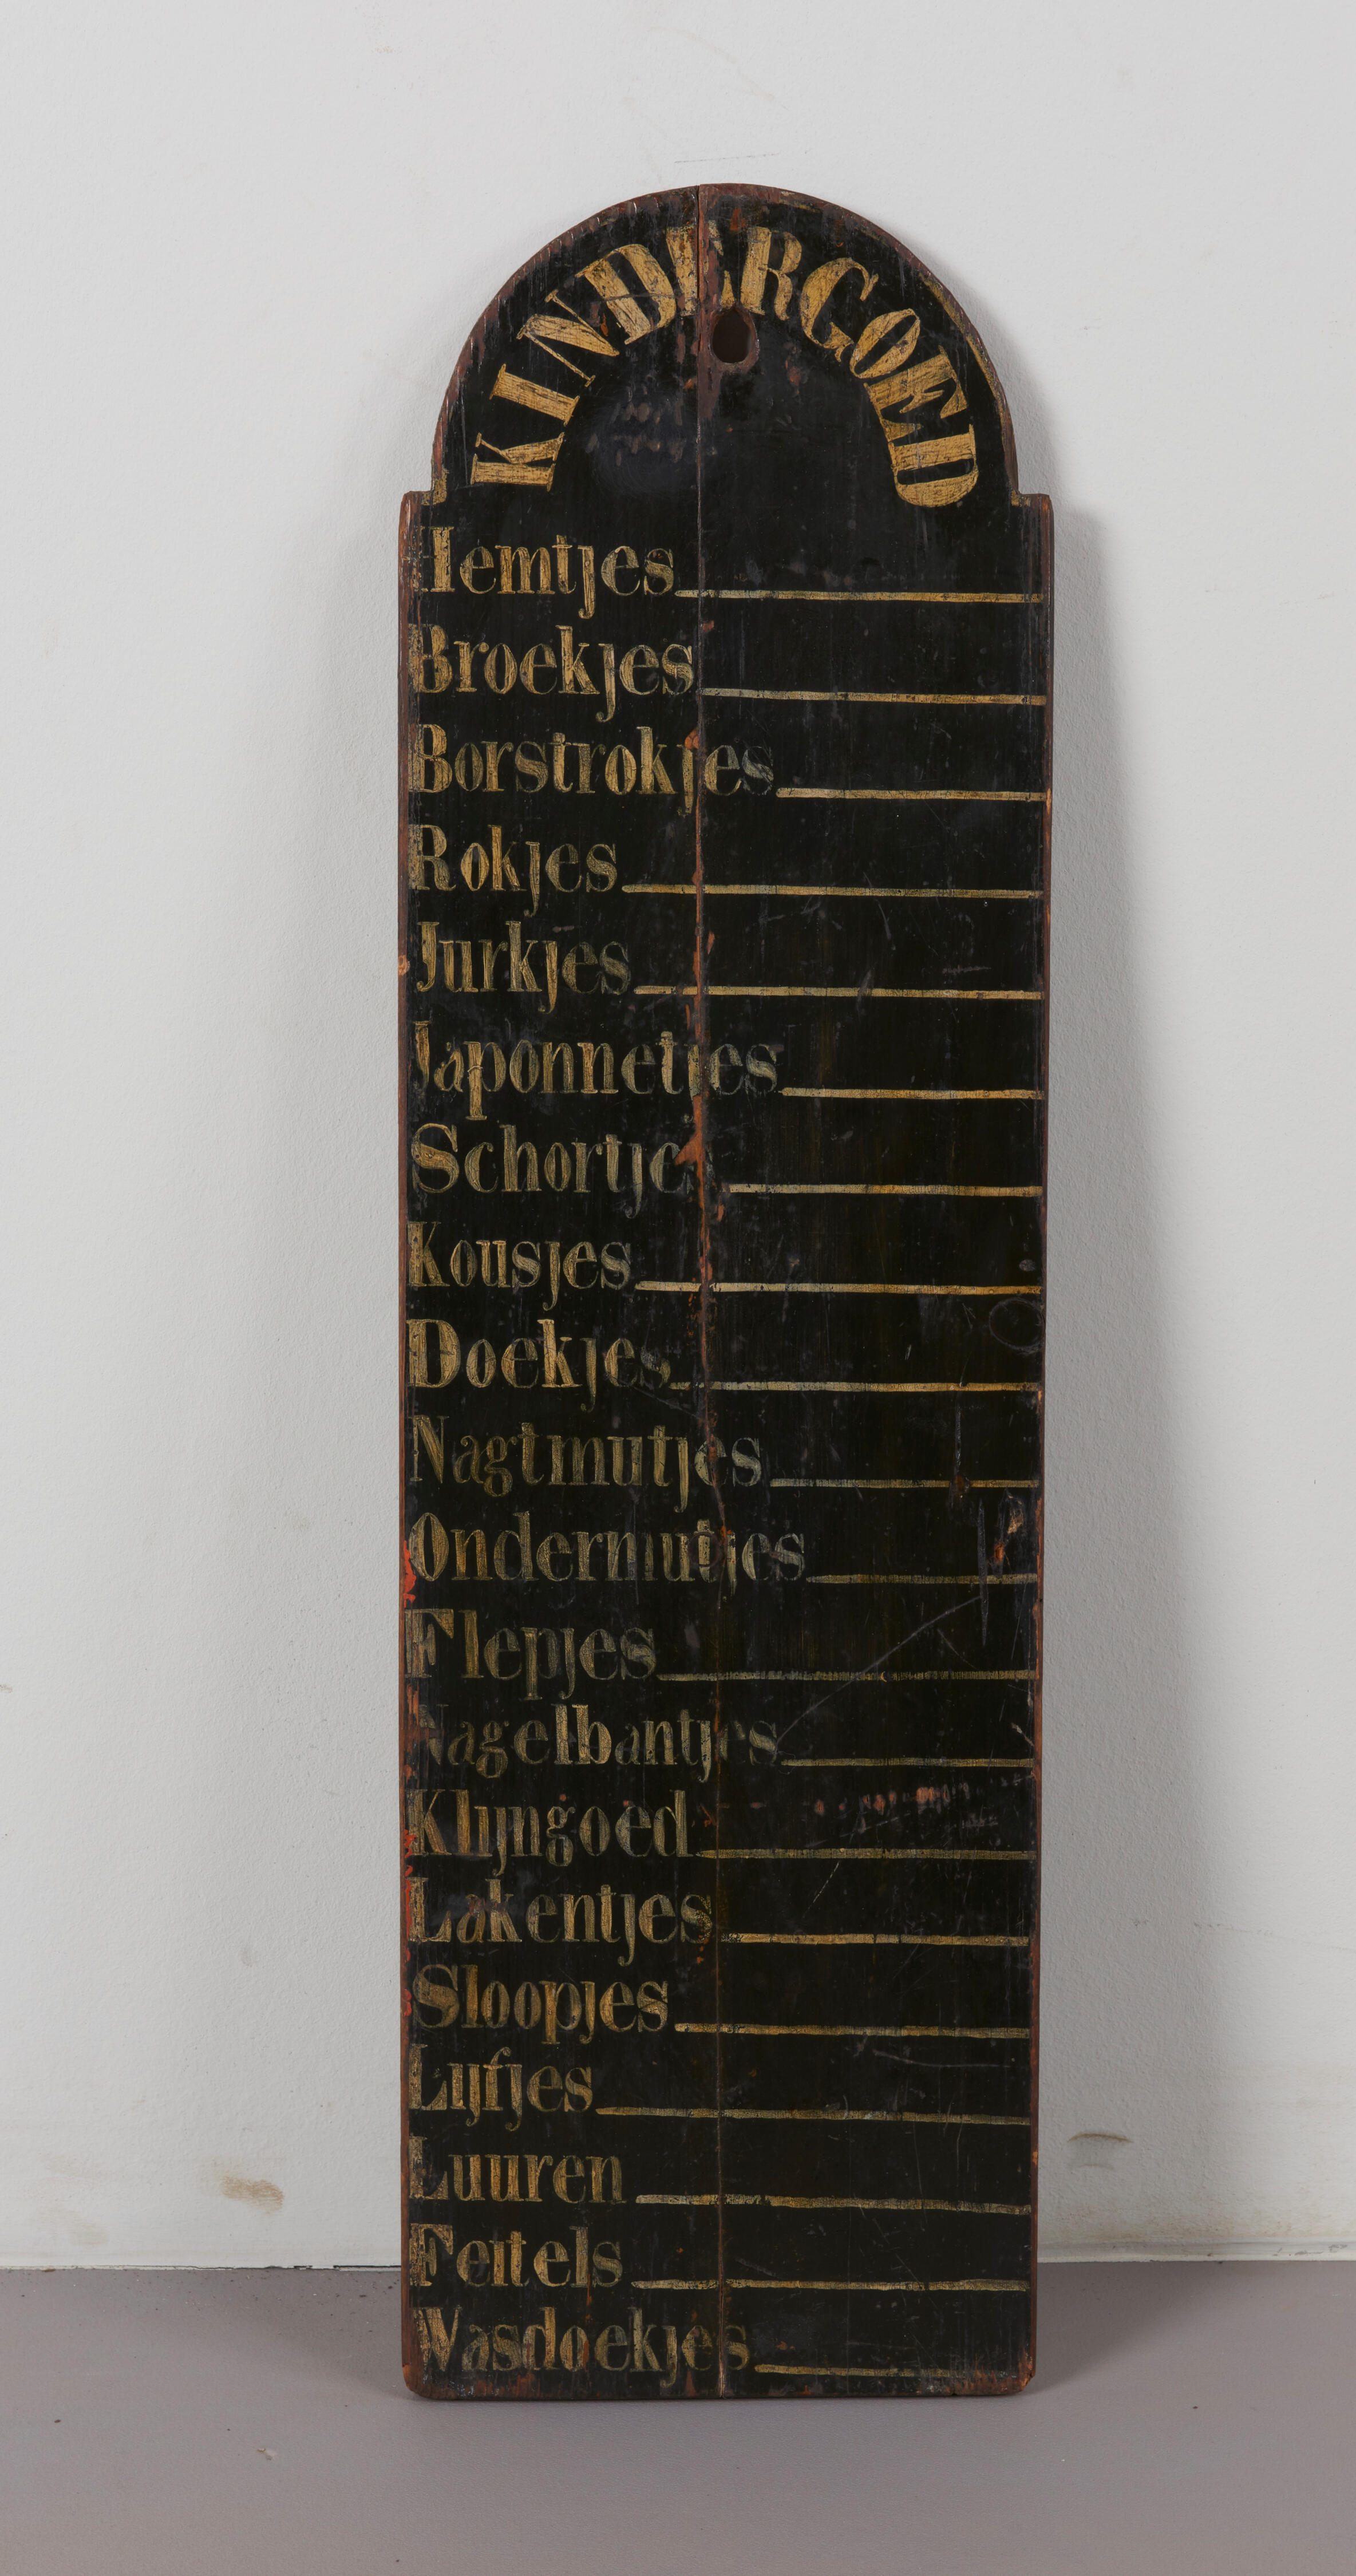 KINDERGOED
Hemtjes
Broekjes
Borstrokjes
Rokjes
Jurkjes
Japonnetjes
Schortjes
Kousjes
Doekjes
Nagtmutjes
Ondermutjes
Flepjes
Nagelbantjes
Klijngoed
Lakentjes
Sloopjes
Lijfjes
Luuren
Feitels
Wasdoekjes